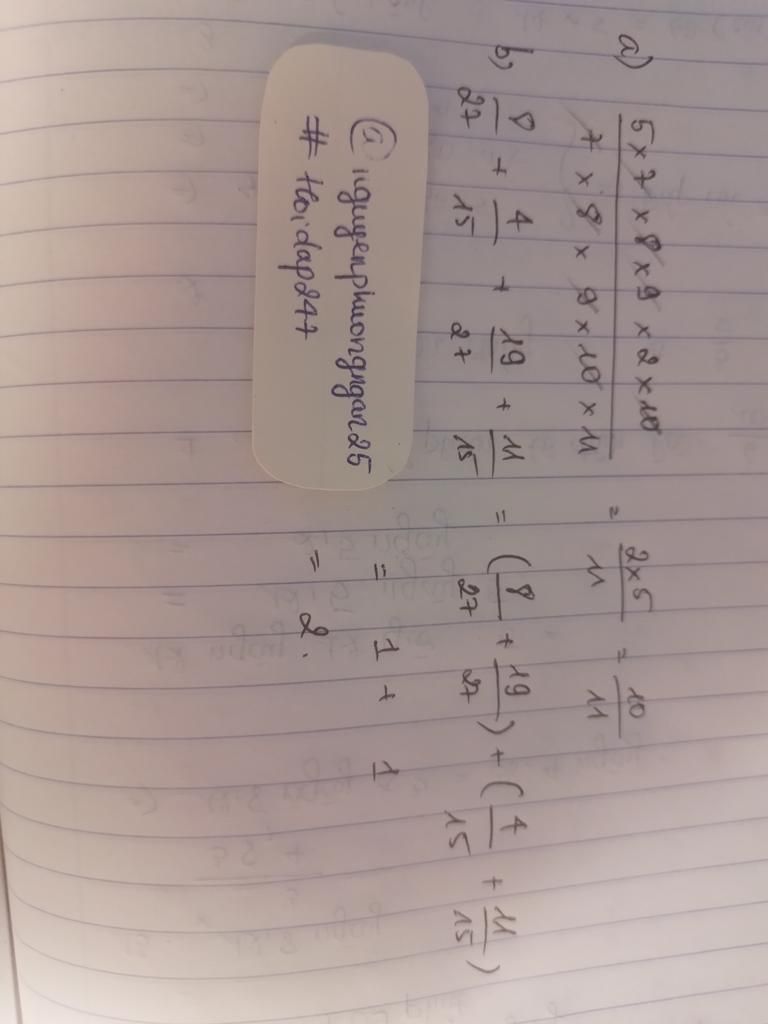 a) 5 x 7 x 8 x 9 x 2 x 10 / 7 x 8 x 9 x 10 x 11 = 2 x 5 / 11 = 10 / 11
b) 8/27 + 4/15 + 19/27 + 11/15 = (8/27 + 19/27) + (4/15 + 11/15)
= 1 + 1
= 2.
@nguyenphuongngan25
# Hoidap247